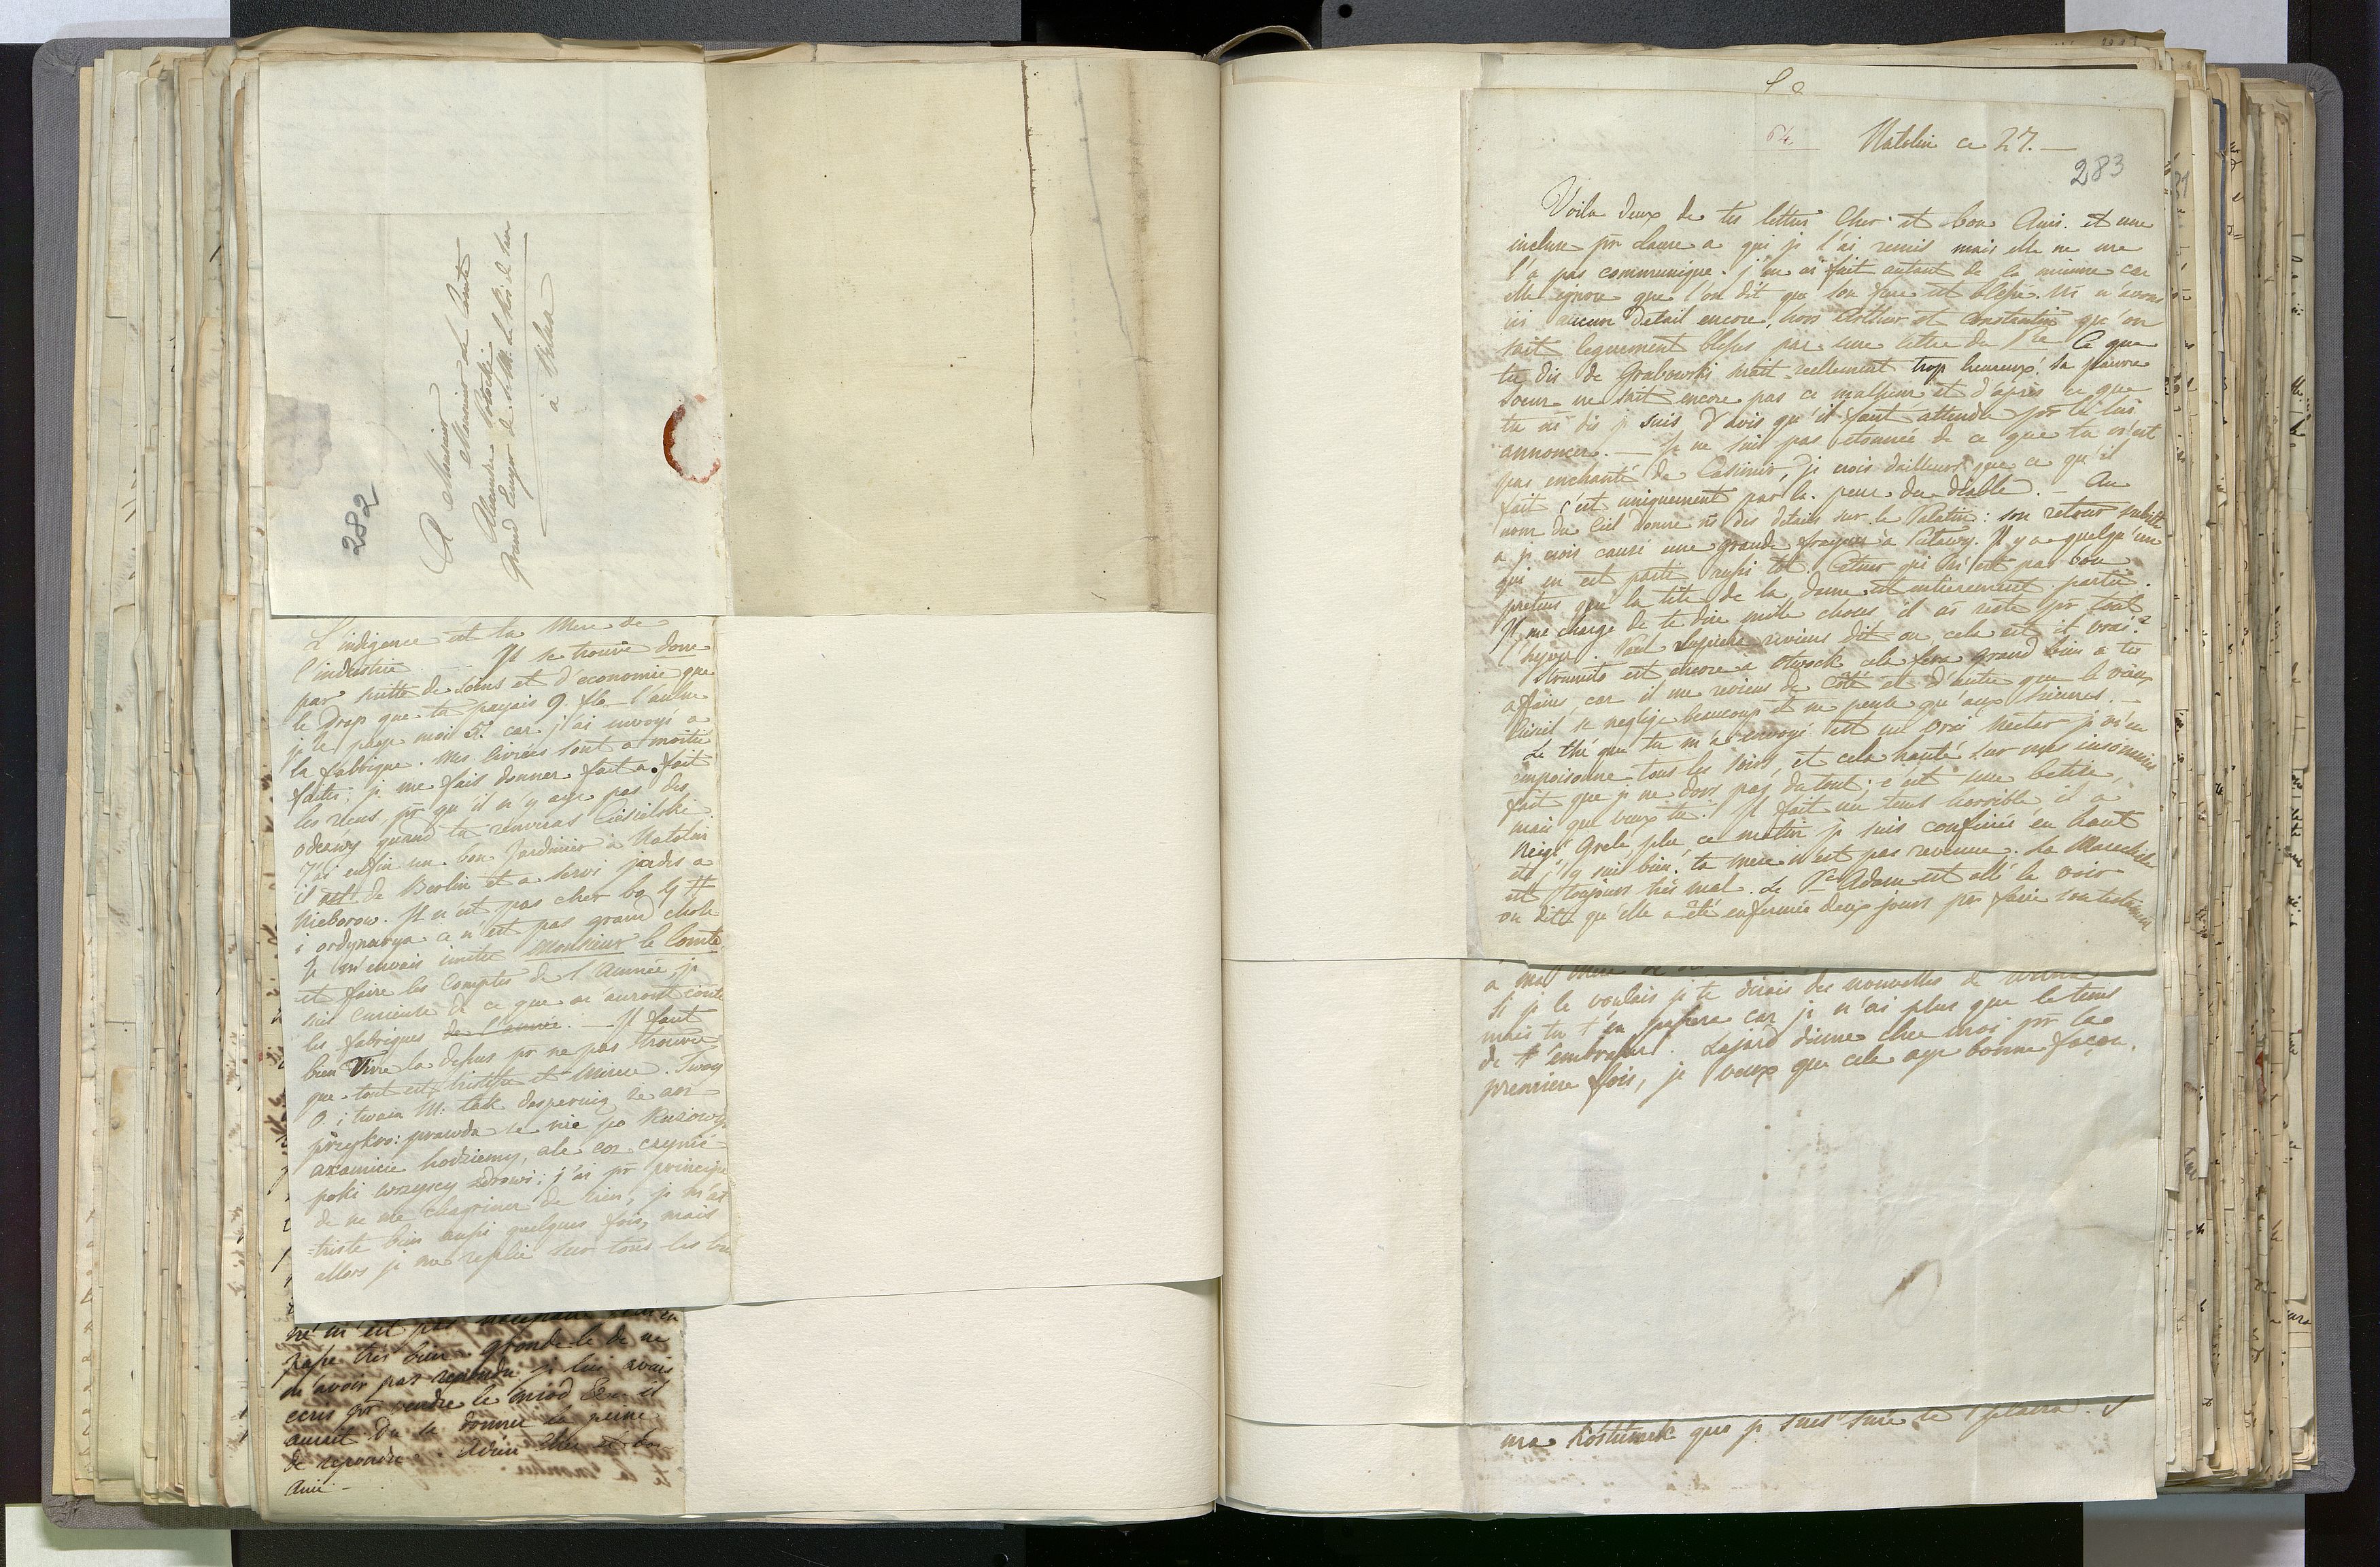 282
A Monsieur
Monsieur le Comte
Alexandre Potocki
Grand Ecuyer de S. M. le Roi de Saxe
à Vilna
L'indigence est la Mere de
l'industrie. Il se trouve donc
par suitte de soins et d'économie que
le drap que tu payais 9. fl. l'aulne
je le paye moi 5. car j'ai envoyé a
la fabbrique. Mes livrées sont a moitié
faites; je me fais donner fait a fait
les reçus, pr qu'il n'y aye pas des
quand tu renveras Ciesielski.
J'ai enfin un bon Jardinier a Natolin
il est de Berlin et a servi jadis a
Nieborow. Il n'est pas cher bo 4 #
i ordynarya ce n'est pas grand chose
Je m'envais imiter Monsieur le Comte
et faire les Comptes de l'Année, je
suis curieuse de ce que m'auront couté
les fabriques de l'année. — Il faut
bien vivre la dessus pr ne pas trouver
que tout est tristesse et misere. Twoy
O. i twoia M: tak desperuią że aż
przykro: prawda że nie po Różowym
axamicie hodziemy, ale coz czynić
poki wszyscy zdrowi; j'ai pr principe
de ne me chagriner de rien, je m'at
=triste bien aussi quelques fois, mais
allors je me replie sur tous les
passe très bien. gronde le de ne
m'avoir pas repondu je lui avais
ecris pr vendre le miod &c. il
aurait du se donner la peine
de repondre. Adieu cher et bon
Ami —
64
Natolin ce 27. —
283
Voila deux de tes lettres Cher et bon Ami. et une
incluse pr Laure a qui je l'ai remis mais elle ne me
l'a pas communiqué. j'en ai fait autant de la mienne car
elle ignore que l'on dit que son frere est blessé. ns n'avons
ici aucun detail encore, hors Arthur et Constantin qu'on
sait legerement blessés par une lettre du Pce. Ce que
tu dis de Grabowski serait reellement trop heureux! sa pauvre
soeur ne sait encore pas ce malheur et d'après ce que
tu m dis je suis d'avis qu'il faut attendre pr le lui
annoncer. — Je ne suis pas etonnée de ce que tu n'est
pas enchanté de Casimir, je crois d'ailleurs que ce qu'il
fait c'est uniquement par la peur du diable. — Au
nom du Ciel donne ns des details sur le Palatin: son retour subit
a je crois causé une grande frayeur a Pulawy. Il y a quelqu'un
qui en est parti aussi tot. qui n'est pas bon
pretens que la tete de la dame est entierement partie.
Il me charge de te dire mille choses il ns reste pr tout
l'hyver. reviens dit-on cela est il vrai?
est encore a Otwock cela fera grand bien a tes
affaires, car il me reviens de côté et d'autre que le vieux
se neglige beaucoup et ne pense qu'aux
Le thé que tu m'a envoyé est un vrai Nectar je m'en
empoisonne tous les soirs, et cela hauté sur mes insomnies
fait que je ne dors pas du tout; c'est une betise,
mais que veux tu. Il fait un tems horrible il a
neigé, grele plu, ce matin je suis confinée en haut
et j'y suis bien. ta mere n'est pas revenue. La Marechale
est toujours très mal. Le Pce Adam est allé la voir
on dit qu'elle a été enfermée deux jours pr faire son testament
Si je le voulais je te dirais des nouvelles de
mais tu t'en passera car je n'ai plus que le tems
de t'embrasser. Lajard dinne chez moi pr la
premiere fois, je veux que cela aye bonne façon.